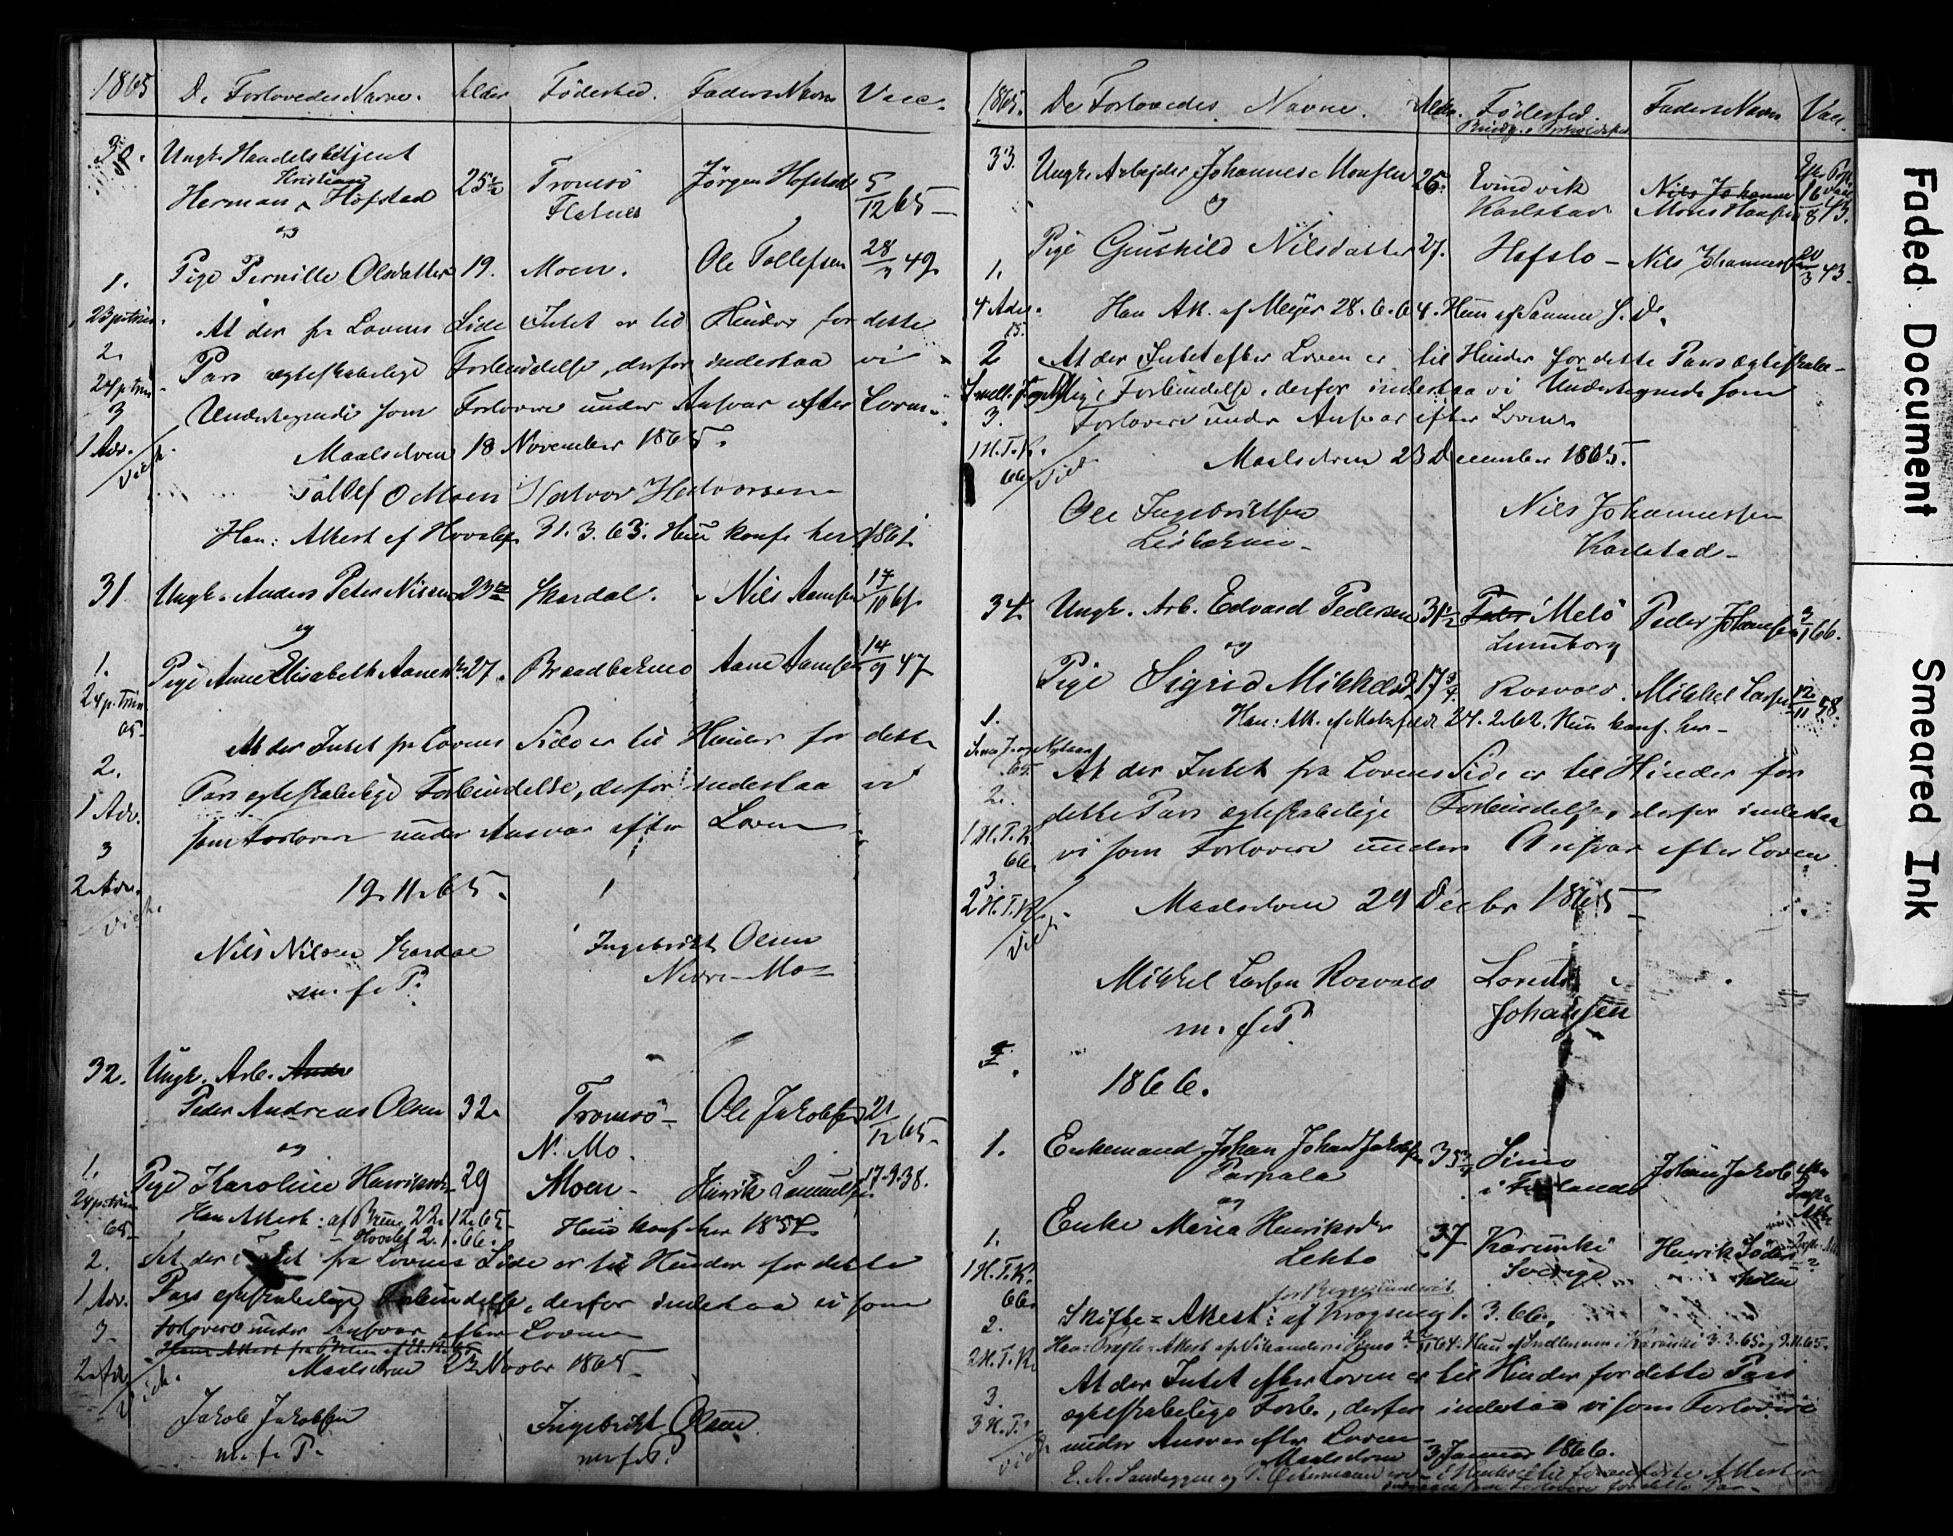 1865 De Forlovedes Navne. Alder Födested. Faders Navn Vacc.
30. Ungk. Handelsbetjent
Kristian
Herman Hofstad 25½ Tromsö Jörgen Hofstad 5/12 65
Flatnes
og
1. Pige Pernille Olsdatter 19. Moen. Ole Tollefsen 28/ 49
23 p. trin. At der fra Lovens Side Intet er til Hinder for dette
2. Pars ægteskabelige Forbindelse, derfor indestaa vi
24 p. trin
3 Undertegnede som Forlovere under Ansvar efter Loven.
1 Adv. Maalselven 18 November 1865.
Vict.
Tollef O Moen Halvor Halvorsen
Han: Attest af Hovslef 31.3.63. Hun konf. her 1861.
31. Ungk. Anders Peter Nilsen 23 Skardal. Nils Aansen 17/10 61
og
1. Pige Anne Elisabeth Aanesd. 27. Brandbakmo Aane Aansen 14/9 47
24 p. trin
65.
At der Intet fra Lovens Side er til Hinder for dette
2. Pars egteskabelige Forbindelse, derfor indestaa vi
1 Adv.
som Forlovere under Ansvar efter Loven
3
2 Adv. 19.11.65.
Vict.
Nils Nilsen Skardal Ingebrikt Olsen
m. f. P. Nedre-Mo
32. Ungk. Arb. Andr
Peder Andreas Olsen 32. Tromsö Ole Jakobsen 21/12 65
og N. Mo.
1. Pige Karoline Henriksd. 29 Moen Hinrik Samuelsen 17.9.38.
24 p. trin
Han Attest: af Brun 22.12.65 Hun konf. her 1857
65. Hovslef 2.1.66.
2. At der Intet fra Lovens Side er til Hinder for dette
1 Adv. Pars egteskabelige Forbindelse, derfor indestaa vi som
3. Forlovere under Ansvar efter Loven
Hans Attest fra Brun
2 Adv. Maalselven 23 Novbr 1865
Vict.
Jakob Jakobsen Ingebrikt Olsen
m. f. P. m. f. P.
1865. De Forlovedes Navne. Alder. Födested. Faders Navn Vacc.
33. Ungk. Arbejder Johannes Monsen 26. Evindvik Nils Johanne
og Karlstad Mons Hansen 16/8 43.
Pige Gunhild Nilsdatter 27. Hofslo Nils Johannesen 20/3 43
1.
4 Adv. Han Att. af Meyer 28.6.64. Hun af Samme S. D.
65.
2 At der Intet efter Loven er til Hinder for dette Pars ægteskabe-
lig Forbindelse, derfor indestaa vi Undertegnede som
3. Forlovere under Ansvar efter Loven.
1 H.T.K. Maalselven 23 December 1865.
66 Vict.
Ole Ingebrigtsen Nils Johannessen
Karlstad
34. Ungk. Arb. Edvard Pedersen 31½ Peder Melö Peder Johansen 3/1 66.
og Lundborg
Pige Sigrid Mikkelsd. 17¾ Rosvold. Mikkel Larsen 12/11 58.
1. Han: Att. af 24.2.62. Hun konf. her
65. At der Intet fra Lovens Side er til Hinder for
2. dette Pars egteskabelige Forbindelse, derfor indestaa
1 H.T.K.
66 vi som Forlovere under Ansvar efter Loven.
3
2 H.T.K. Maalselven 29 Decbr 1865
Vict.
Mikkel Larsen Rosvold Lorents
m. f. P. Johansen
1866.
1. Enkemand Johan Johansen Jakobsen 35¾ Simo Johan Jakob
Parpala i Finland
og
Enke Maria Henriksdr 37 Karunki Henrik
1. Lekto Sverige
1 H.T.K.
66.
2. Skifte-Attest: af Krogseng 1.3.66.
2 H.T.K.
At der Intet efter Loven er til Hinder for dette Pars
3. egteskabelige Forb., derfor indestaa vi som Forlovere
3 H.T. under Ansvar efter Loven
Vict. Maalselven 3 Januar 1866.
Faded Document
Smeared Ink